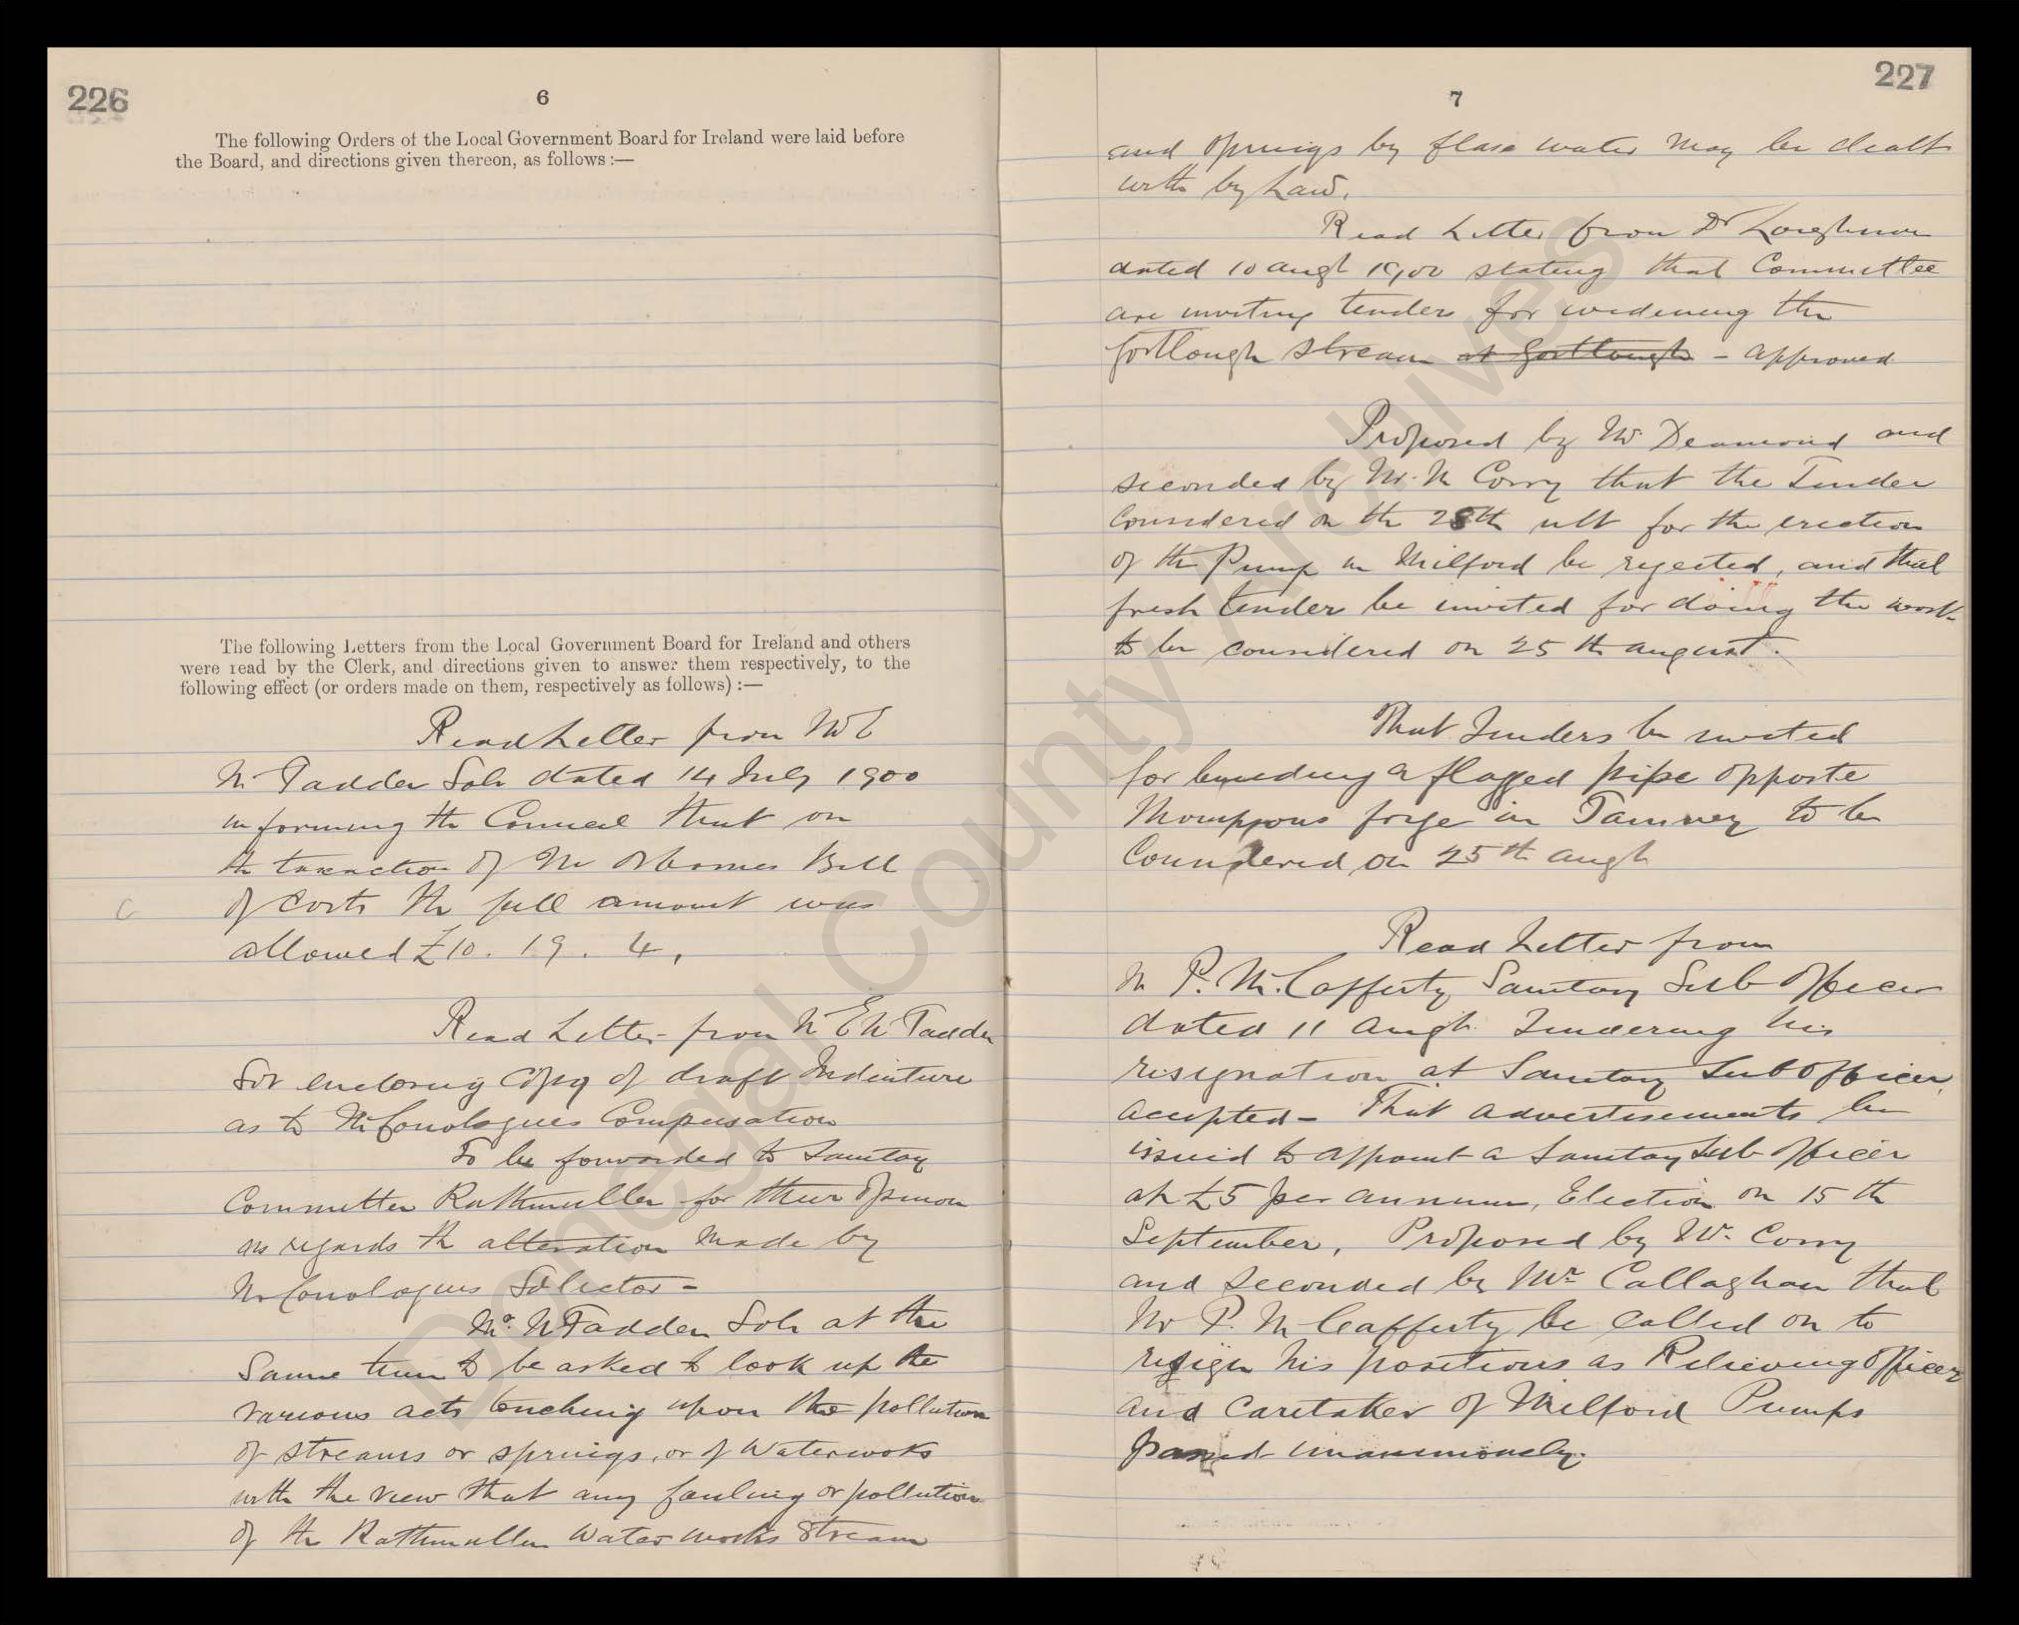 226
6
The following Orders of the Local Government Board for Ireland were laid before
the Board, and directions given thereon, as follows :—
The following Letters from the Local Government Board for Ireland and others
were read by the Clerk, and directions given to answer them respectively, to the
following effect (or orders made on them, respectively as follows) :—
Read Letter from Mr E
McFadden Solr dated 14 July 1900
informing the Council that on
the taxaction of Mr Osbornes Bill
of Costs the full amount was
allowed £10. 19. 4.
Read Letter from Mr E McFadden
Solr enclosing Copy of draft Indenture
as to McConologues Compensation
To be forwarded to Sanitary
Committee Rathmullen for their opinion
as regards the alteration made by
McConologues Solicitor -
Mr. McFadden Solr at the
Same time to be asked to look up the
various acts touching upon the pollution
of streams or springs, or of Waterworks
with the view that any fouling or pollution
of the Rathmullen Water works Stream
227
7
and springs by flax water may be dealt
with by Law.
Read Letter from Dr Loughnan
dated 10 Augt 1900 stating that Committee
are inviting tenders for widening the
Gortlough stream at Gortlough - approved
Proposed by Mr Deamond and
seconded by Mr. McCorry that the Tender
Considered on the 28th ult for the erection
of the Pump in Milford be rejected, and that
fresh tender be invited for doing the work
to be considered on 25th August.
That Tenders be invited
for building a flagged pipe opposite
Thompsons forge in Tamney to be
Considered on 25th Augt
Read Letter from
Mr P. McCafferty Sanitary Sub Officer
dated 11 Augt. Tendering his
resignation at Sanitary Sub Officer,
accepted - That advertisements be
issued to appoint a Sanitary Sub officer
at £5 per annum, Election on 15th
September, Proposed by Mr. Corry
and seconded by Mr. Callaghan that
Mr P. McCafferty be called on to
resign his positions as Relieving Officer
and Caretaker of Milford Pumps
passed unanimously.
Donegal County Archives